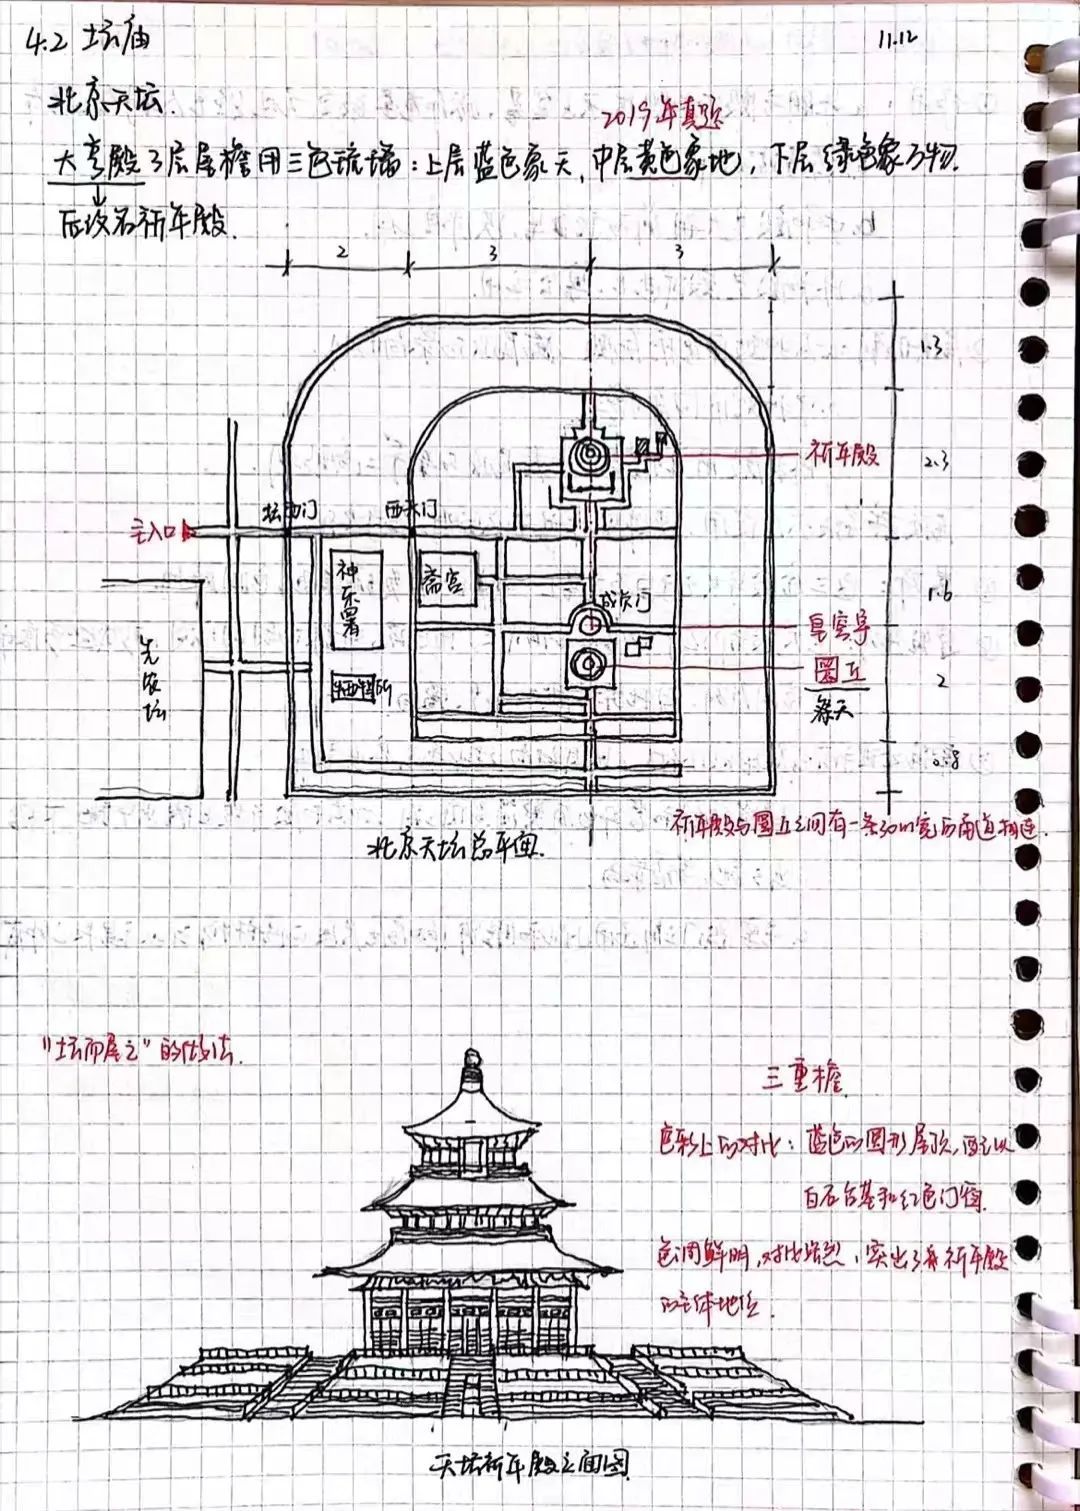 4.2 坛庙
11.12
北京天坛.
2019年真题
大享殿3层屋檐用三色琉璃：上层蓝色象天，中层黄色象地，下层绿色象万物.
后改名祈年殿.
2 3 3
1.3
祈年殿
2.3
主入口
坛西门
西天门
神乐署
斋宫
成贞门
1.6
皇穹宇
圜丘
祭天
2
先农坛
牺牲所
0.8
祈年殿与圜丘之间有一条30m宽的甬道相连.
北京天坛总平面.
"坛而屋之"的做法.
三重檐
色彩上的对比：蓝色的圆形屋顶，配以
白石台基和红色门窗.
色调鲜明，对比强烈，突出了祈年殿
的主体地位.
天坛祈年殿立面图